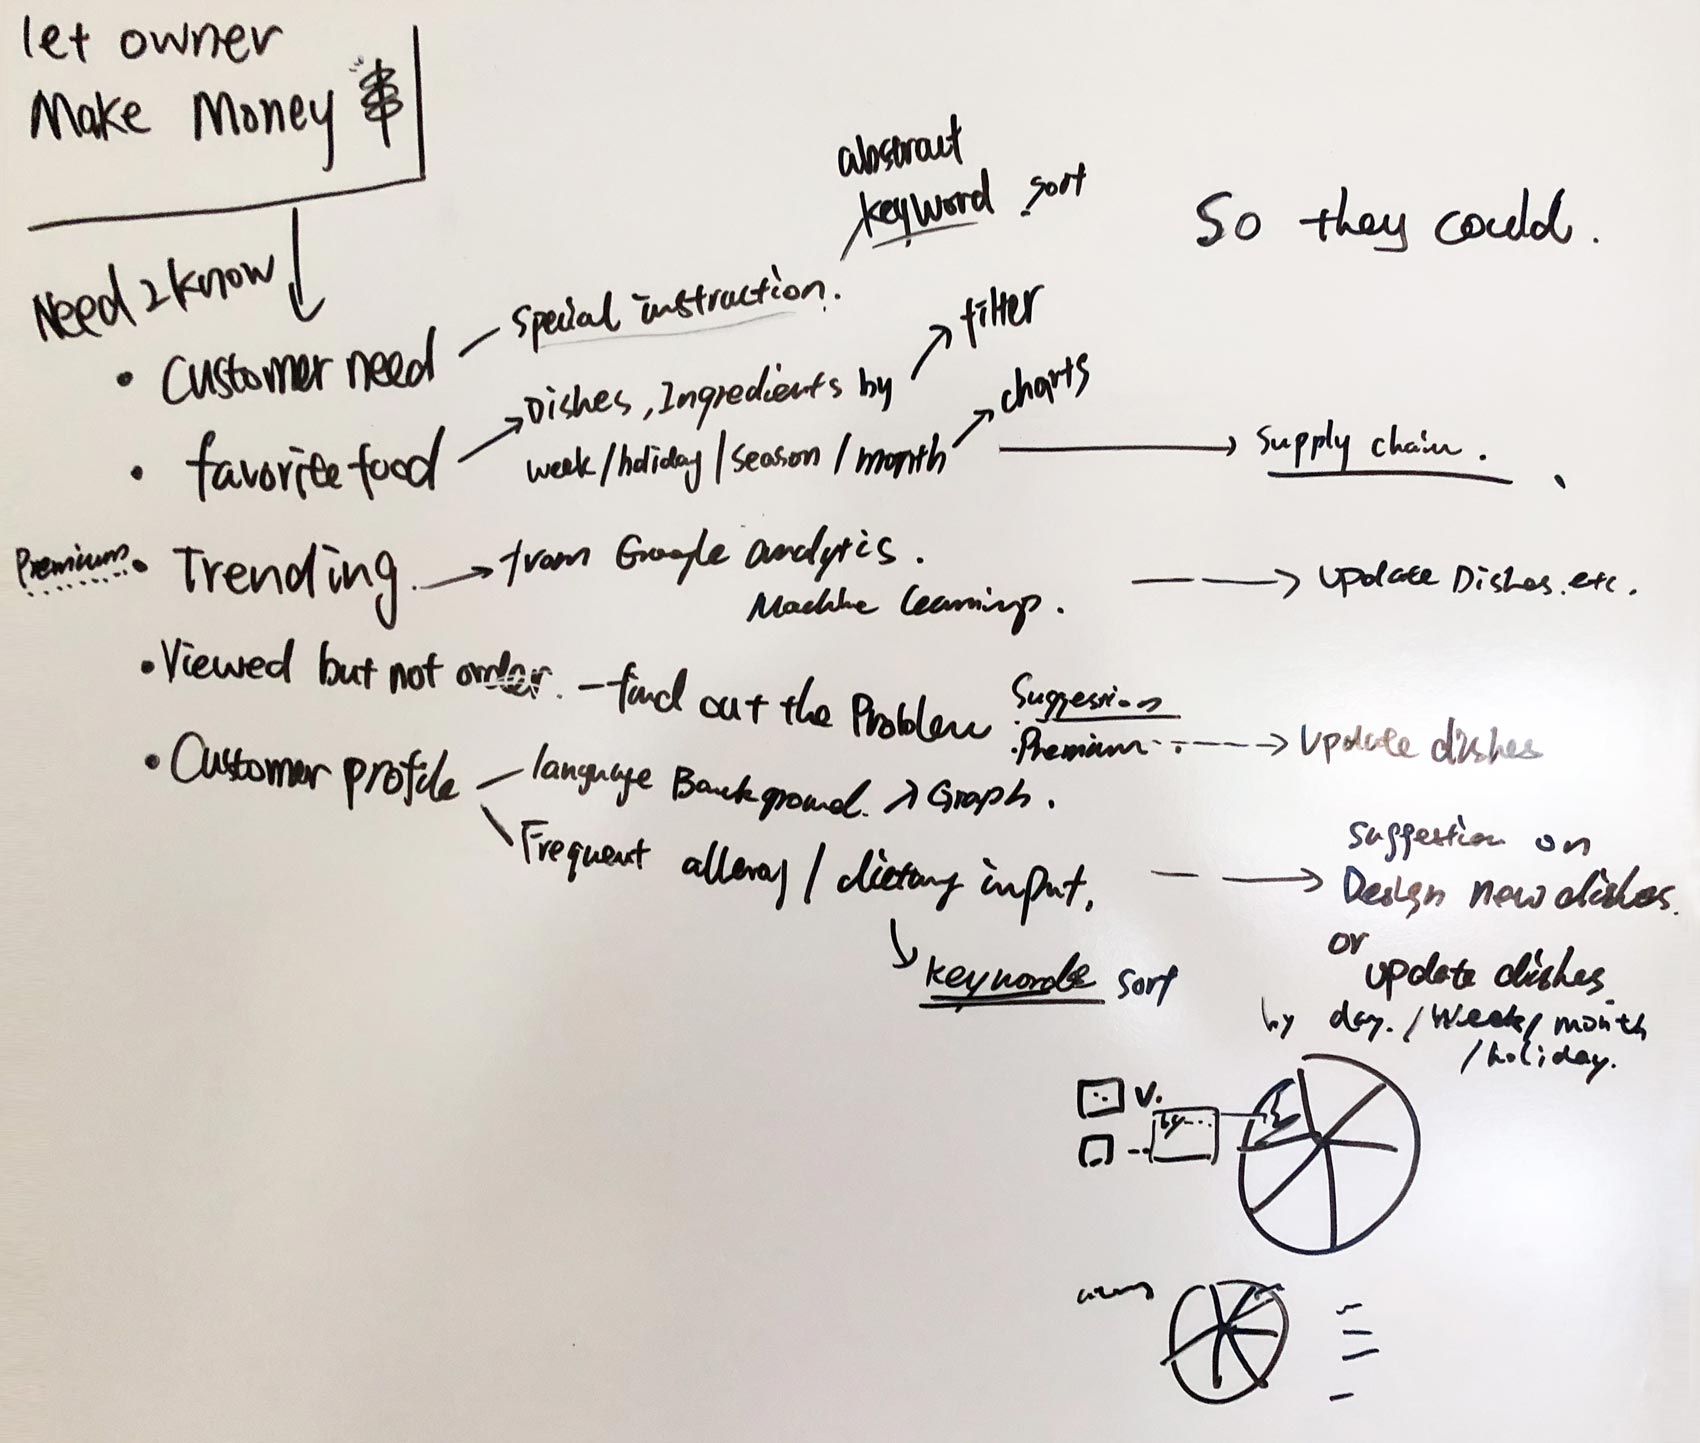 let owner
Make Money $
Need 2 know
abstract
keyword sort
So they could.
• Customer need – special instruction.
• favorite food → Dishes, Ingredients by → filter
week/holiday/season/month → charts → supply chain.
Premium • Trending → from Google analytics.
Machine Learning. → update Dishes.etc.
• Viewed but not order. – find out the Problem
Suggession
• Premium → update dishes
• Customer profile – language Background. → Graph.
Frequent allergy / dietary input.
keywords sort
suggestion on
Design new dishes.
or
update dishes
by day. / week / month
/ holiday.
V.
by ...